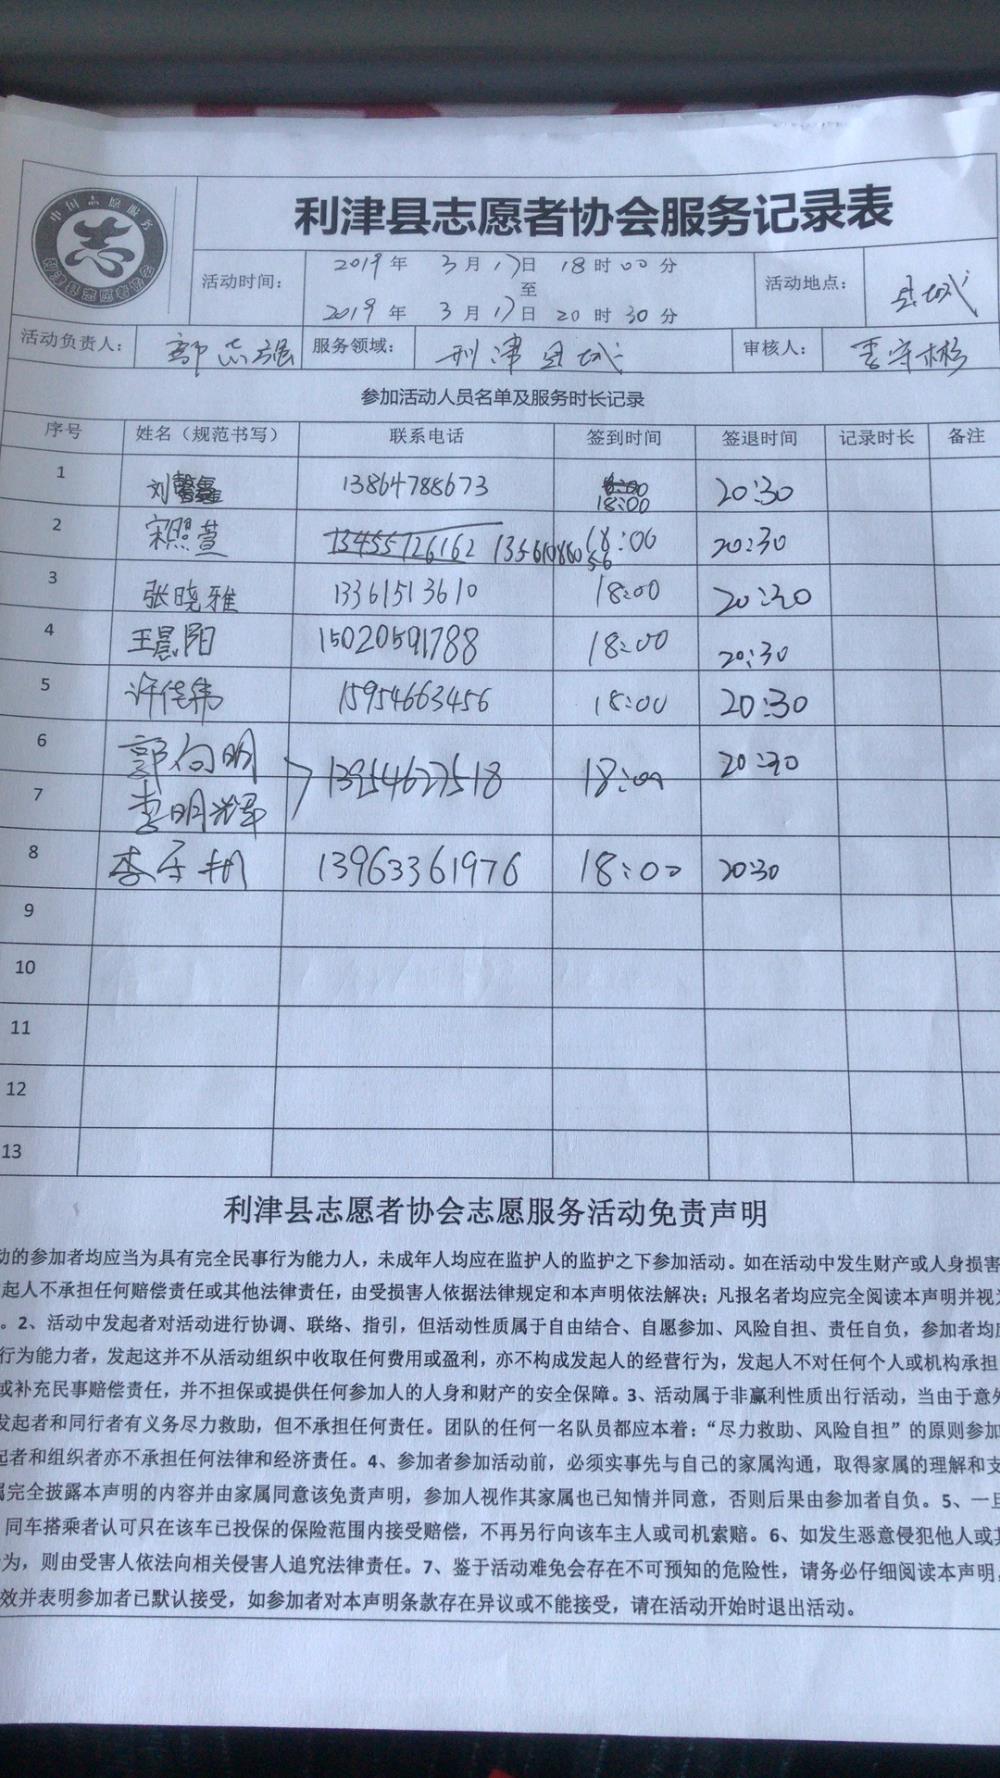 中国志愿服务
志
利津县志愿者协会服务记录表
活动时间：
2019年 3月17日 18时00分
至
2019年 3月17日 20时30分
活动地点：
县城
活动负责人：
志强
服务领域：
利津县城
审核人：
李守彬
参加活动人员名单及服务时长记录
序号 姓名（规范书写） 联系电话 签到时间 签退时间 记录时长 备注
1 刘 13864788673 18:00 20:30
2 宋照萱 15455726162 18:00 20:30
3 张晓雅 13361513610 18:00 20:30
4 王晨阳 15020591788 18:00 20:30
5 许佳伟 15954663456 18:00 20:30
6 郭向明 13954627518 18:00 20:30
7 李明辉
8 李 13963361976 18:00 20:30
9
10
11
12
13
利津县志愿者协会志愿服务活动免责声明
动的参加者均应当为具有完全民事行为能力人，未成年人均应在监护人的监护之下参加活动。如在活动中发生财产或人身损害
起人不承担任何赔偿责任或其他法律责任，由受损害人依据法律规定和本声明依法解决；凡报名者均应完全阅读本声明并视为
。2、活动中发起者对活动进行协调、联络、指引，但活动性质属于自由结合、自愿参加、风险自担、责任自负，参加者均应
行为能力者，发起这并不从活动组织中收取任何费用或盈利，亦不构成发起人的经营行为，发起人不对任何个人或机构承担
或补充民事赔偿责任，并不担保或提供任何参加人的人身和财产的安全保障。3、活动属于非赢利性质出行活动，当由于意外
发起者和同行者有义务尽力救助，但不承担任何责任。团队的任何一名队员都应本着：“尽力救助、风险自担”的原则参加
起者和组织者亦不承担任何法律和经济责任。4、参加者参加活动前，必须实事先与自己的家属沟通，取得家属的理解和支
属完全披露本声明的内容并由家属同意该免责声明，参加人视作其家属也已知情并同意，否则后果由参加者自负。5、一旦
同车搭乘者认可只在该车已投保的保险范围内接受赔偿，不再另行向该车主人或司机索赔。6、如发生恶意侵犯他人或其
为，则由受害人依法向相关侵害人追究法律责任。7、鉴于活动难免会存在不可预知的危险性，请务必仔细阅读本声明，
效并表明参加者已默认接受，如参加者对本声明条款存在异议或不能接受，请在活动开始时退出活动。